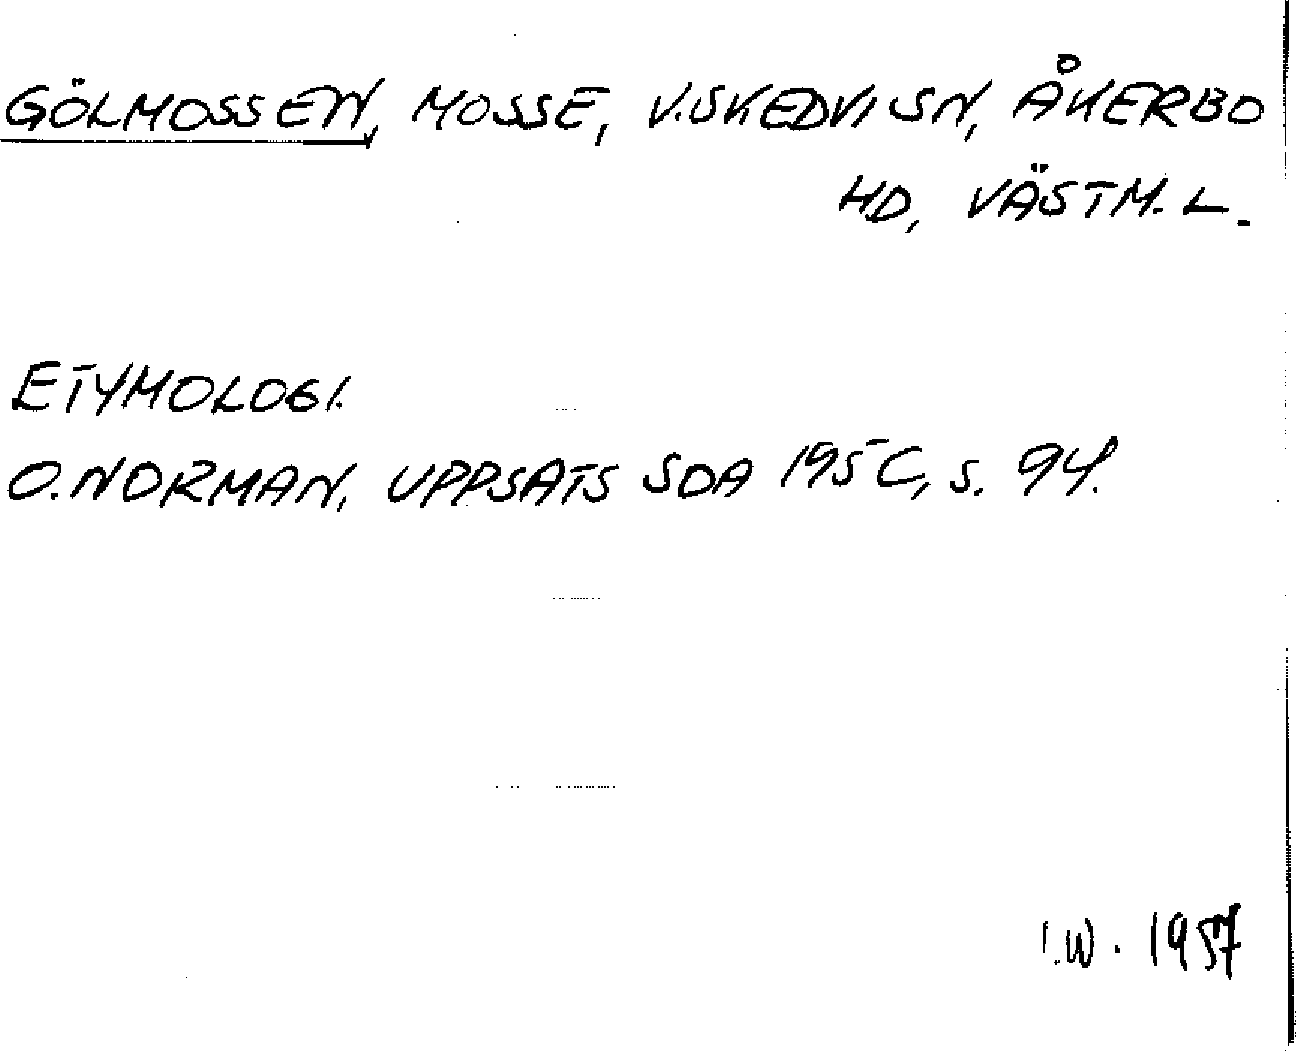 GÖLMOSSEN, MOSSE, V.SKEDVI SN, ÅKERBO
HD, VÄSTM. L.
ETYMOLOGI.
O. NORMAN, UPPSATS SOA 195 C, S. 94.
I.W. 1957